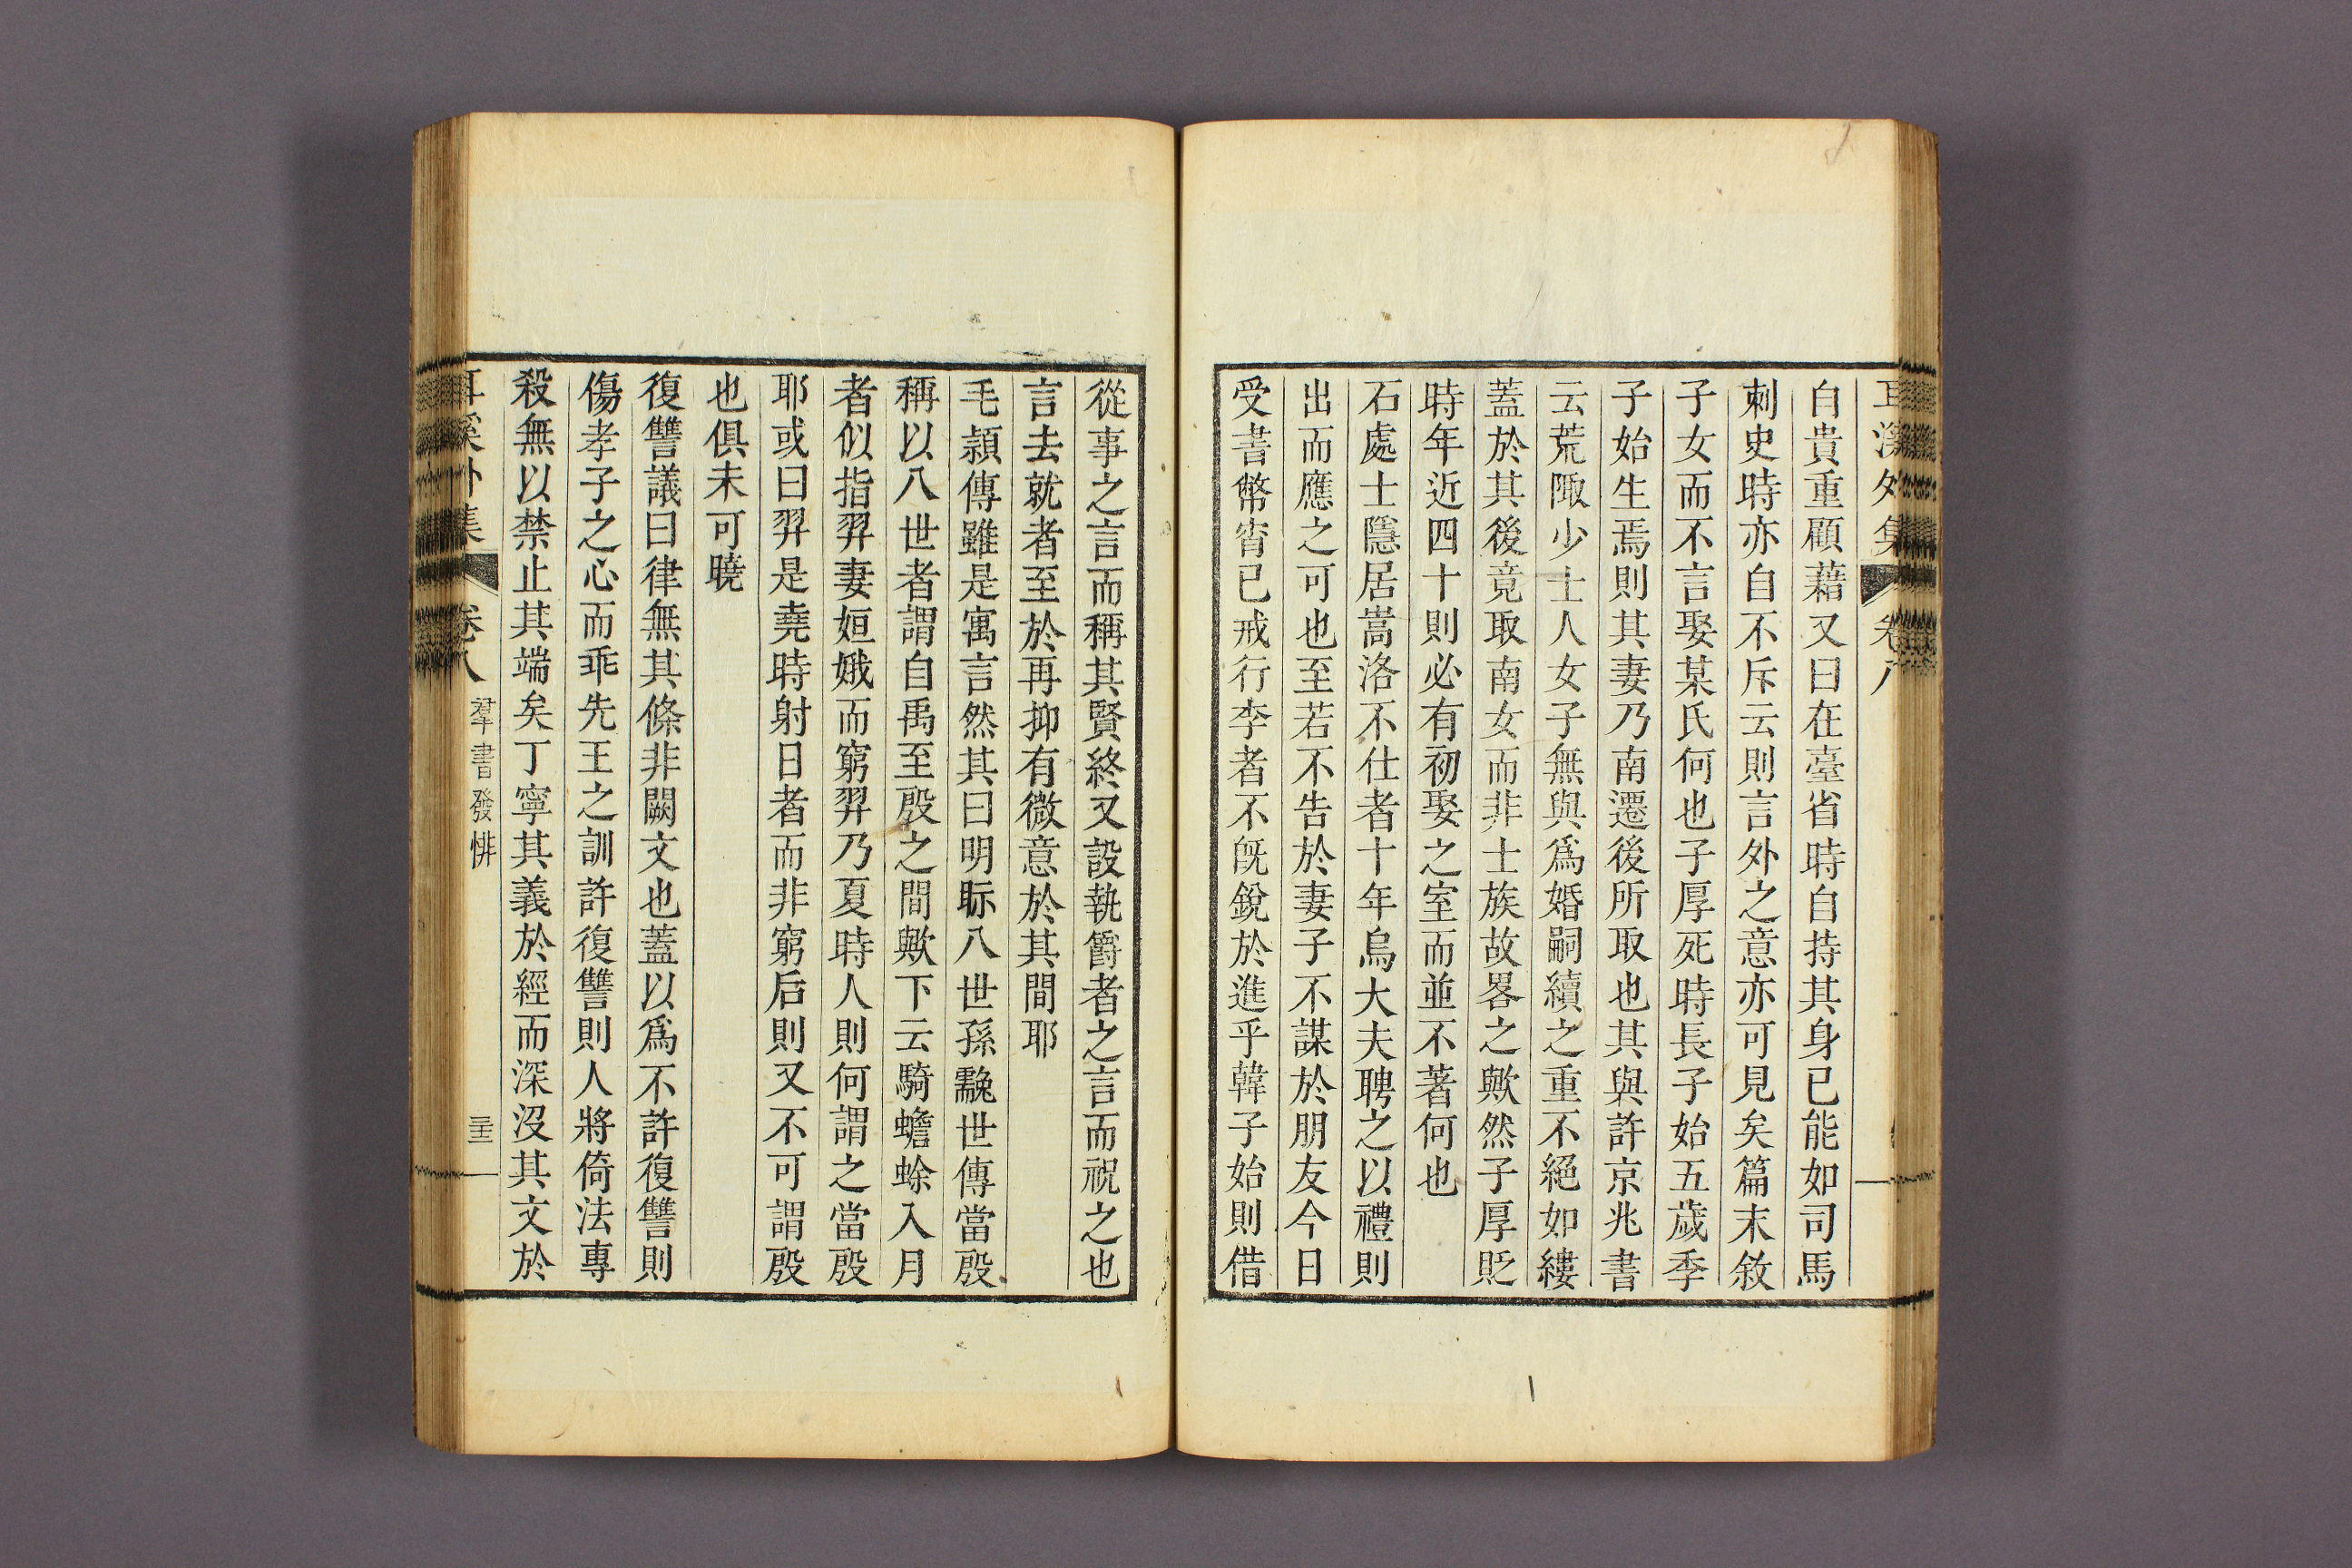 耳溪外集 卷八
自貴重顧藉又曰在臺省時自持其身已能如司馬
刺史時亦自不斥云則言外之意亦可見矣篇末敘
子女而不言娶某氏何也子厚死時長子始五歲季
子始生焉則其妻乃南遷後所取也其與許京兆書
云荒陬少士人女子無與爲婚嗣續之重不絕如縷
蓋於其後竟取南女而非士族故畧之歟然子厚貶
時年近四十則必有初娶之室而並不著何也
石處士隱居嵩洛不仕者十年烏大夫聘之以禮則
出而應之可也至若不告於妻子不謀於朋友今日
受書幣宵已戒行李者不旣銳於進乎韓子始則借
從事之言而稱其賢終又設執爵者之言而祝之也
言去就者至於再抑有微意於其間耶
毛潁傳雖是寓言然其曰明眎八世孫䨲世傳當殷
稱以八世者謂自禹至殷之間歟下云騎蟾蜍入月
者似指羿妻姮娥而窮羿乃夏時人則何謂之當殷
耶或曰羿是堯時射日者而非窮后則又不可謂殷
也俱未可曉
復讐議曰律無其條非闕文也蓋以爲不許復讐則
傷孝子之心而乖先王之訓許復讐則人將倚法專
殺無以禁止其端矣丁寧其義於經而深沒其文於
耳溪外集 卷八 羣書發悱